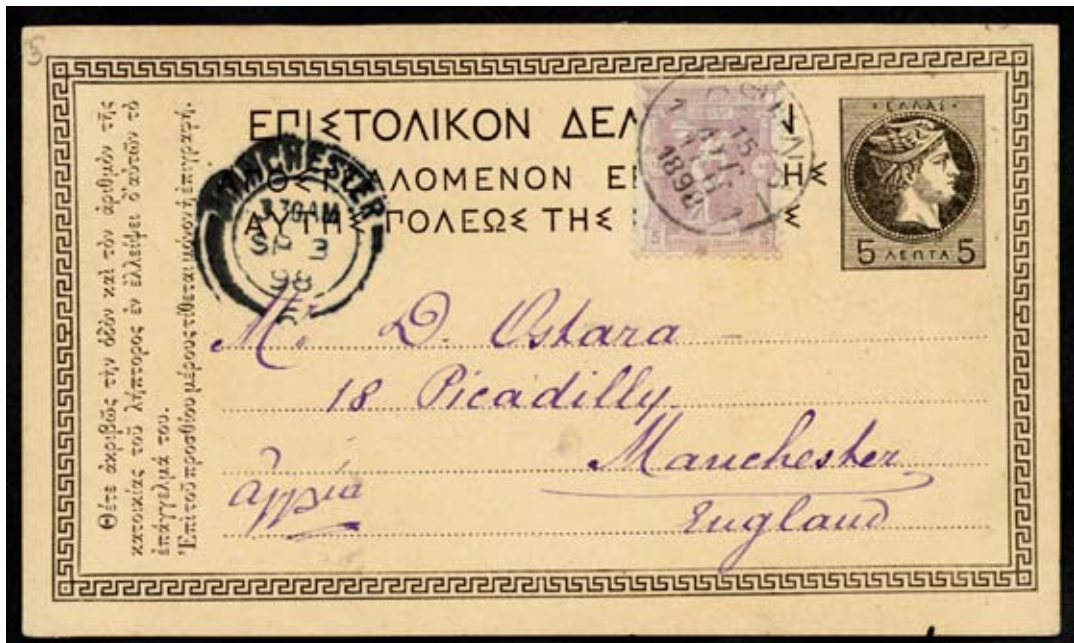 5
ΕΠΙΣΤΟΛΙΚΟΝ ΔΕΛ Ν
ΛΟΜΕΝΟΝ Ε ΤΗΣ
ΑΥΤΗΣ ΠΟΛΕΩΣ ΤΗΣ
·ΕΛΛΑΣ·
5 ΛΕΠΤΑ 5
1
15
ΑΥΓ
1898
1
5 5
MANCHESTER
3 30AM
SP 3
98
Θέτε ἀκριβῶς τὴν ὁδὸν καὶ τὸν ἀριθμὸν τῆς
κατοικίας τοῦ λήπτορος ἐν ἐλλείψει δ'αὐτῶν τὸ
ἐπάγγελμά του.
Ἐπὶ τοῦ προσθίου μέρους τίθεται μόνον ἡ ἐπιγραφή.
Mr D. Ostara
18 Picadilly
Manchester
Αγγλία
England